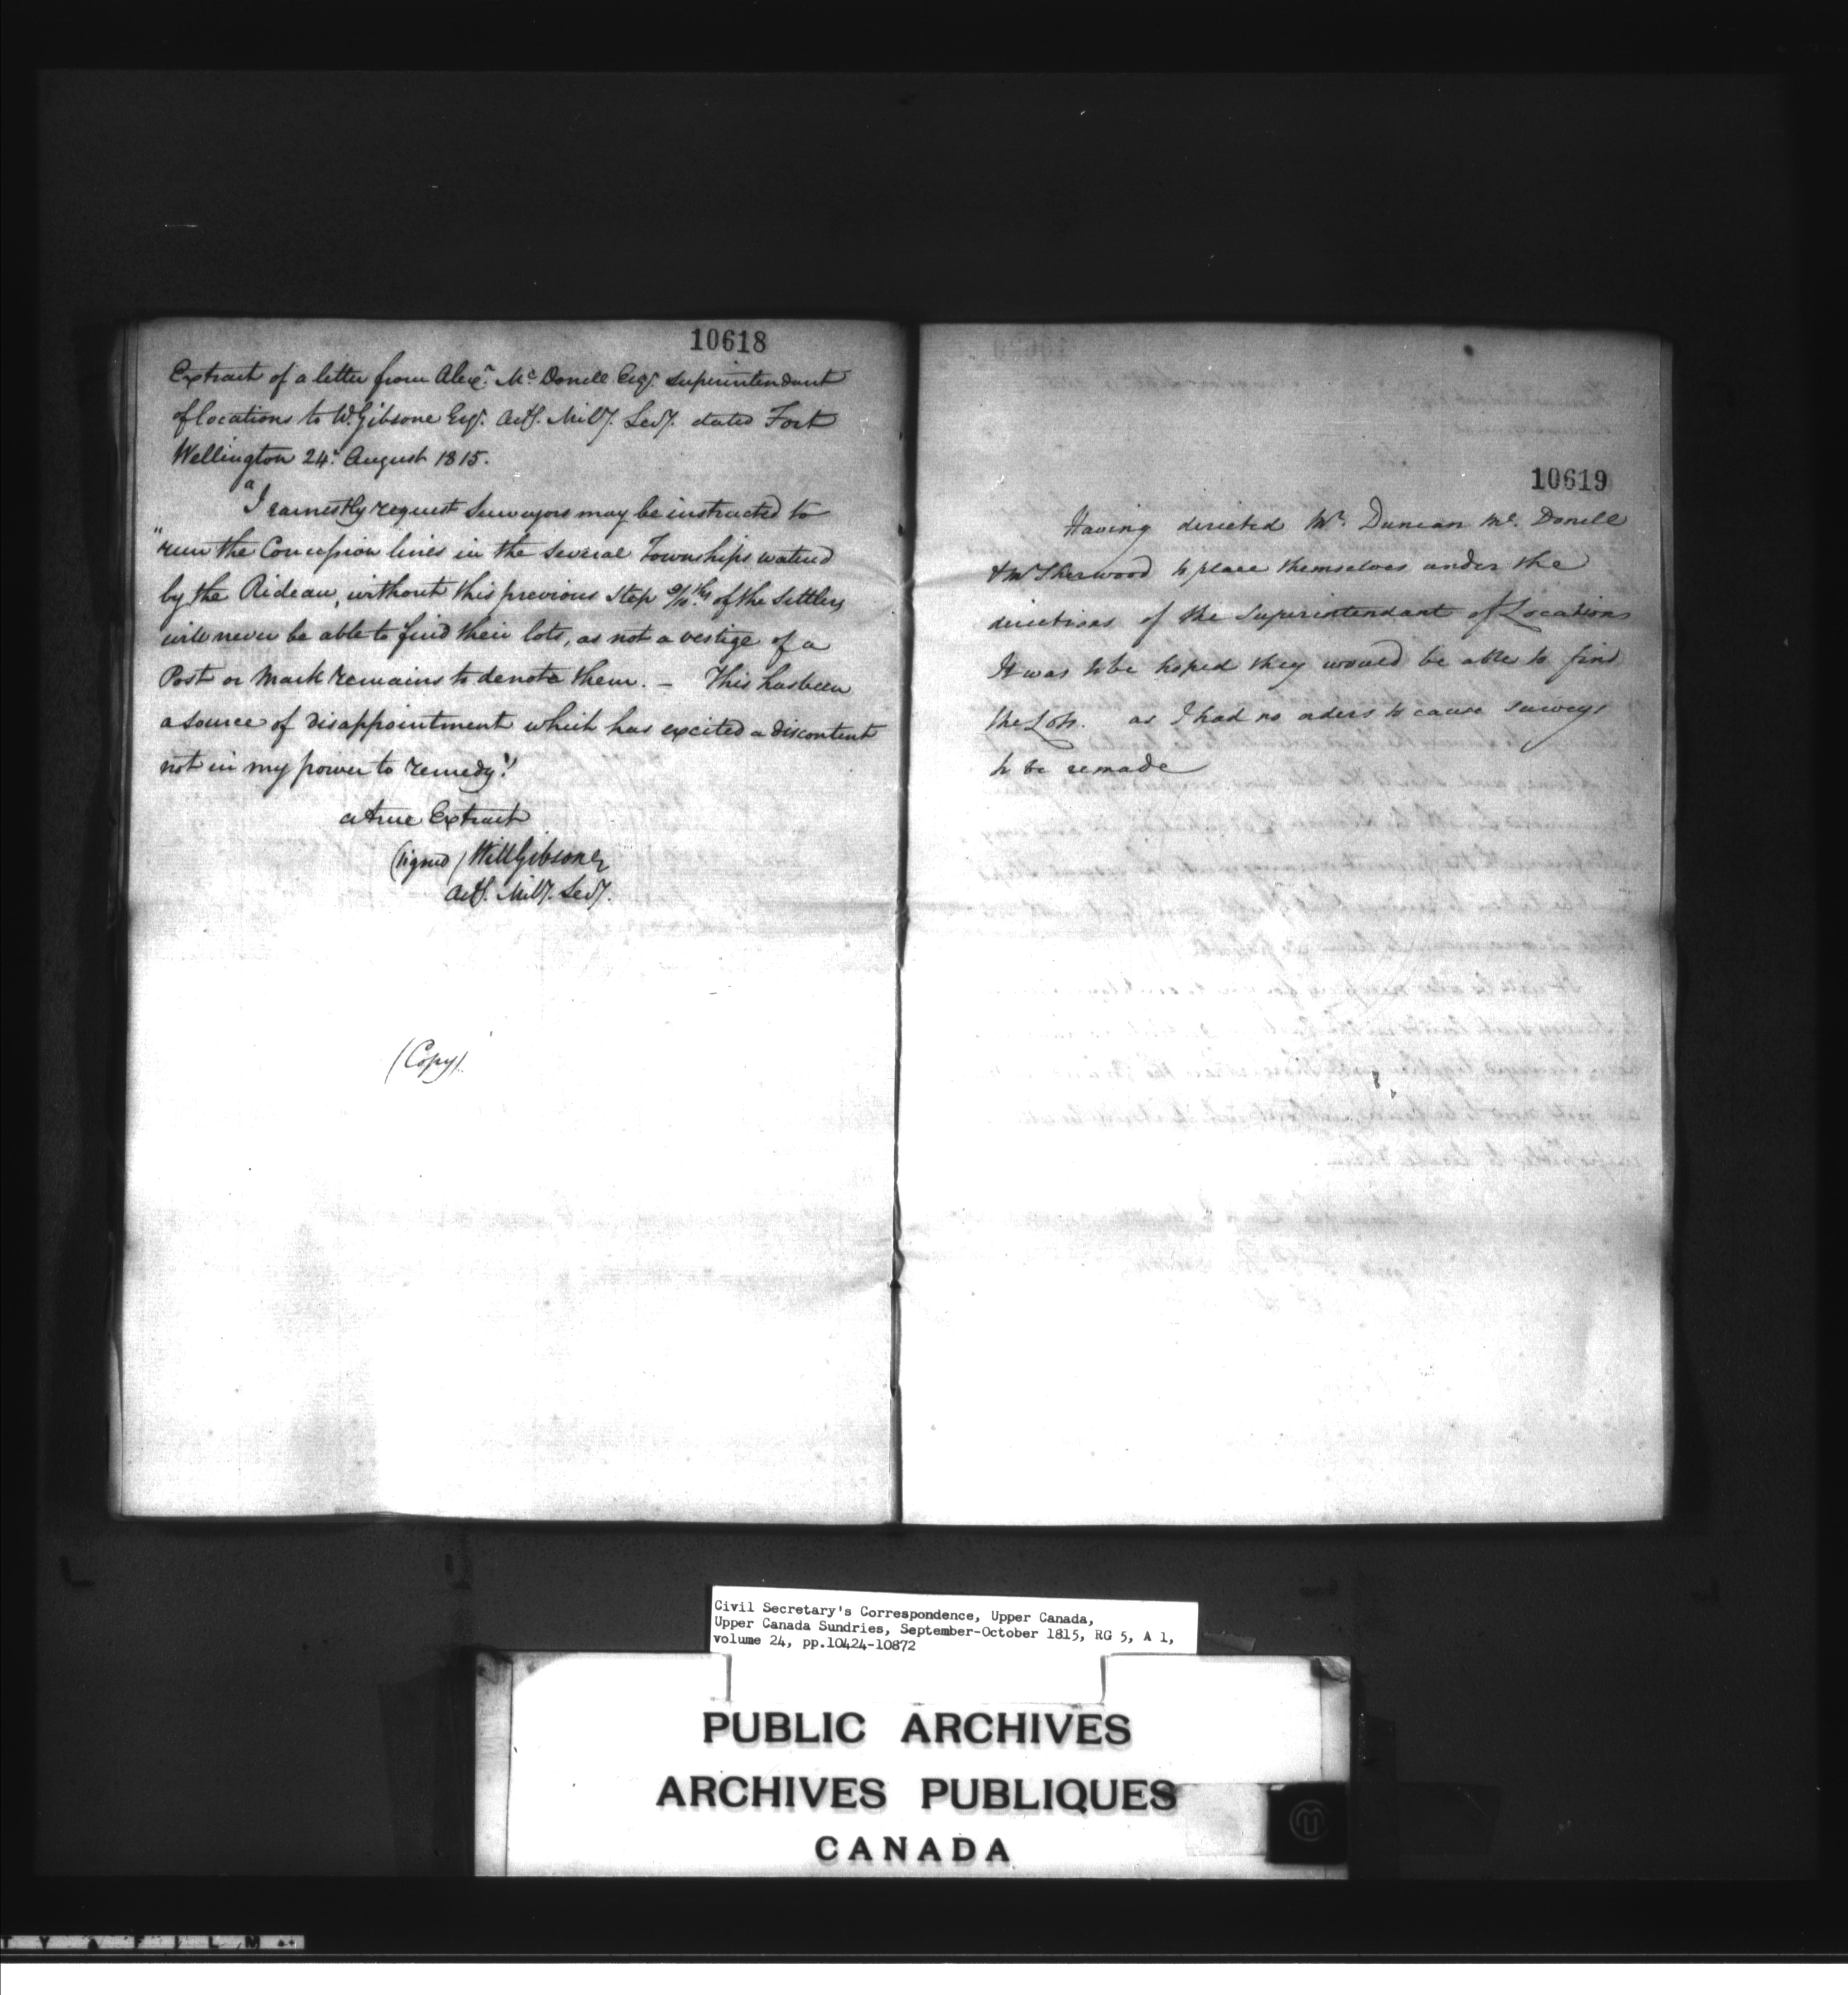 10618
Extract of a letter from Alexr. Mc Donell Esqr. Superintendant
of locations to W. Gibsone Esqr. Actg. Mily. Secy. dated Fort
Wellington 24th. August 1815.
"I earnestly request Surveyors may be instructed to
"run the Concession lines in the several Townships watered
by the Rideau, without this previous step 9/10ths of the settlers
will never be able to find their lots, as not a vestige of a
Post or Mark remains to denote them. – This has been
a source of disappointment which has excited a discontent
not in my power to remedy"
a true Extract
(signed) Will Gibsone
Actg. Mily. Secy.
(Copy)
10619
Having directed Mr. Duncan Mc. Donell
& Mr Sherwood to place themselves under the
directions of the Superintendant of Locations
It was to be hoped they would be able to find
the Lots. as I had no orders to cause surveys
to be remade
Civil Secretary's Correspondence, Upper Canada,
Upper Canada Sundries, September-October 1815, RG 5, A 1,
volume 24, pp.10424-10872
PUBLIC ARCHIVES
ARCHIVES PUBLIQUES
CANADA